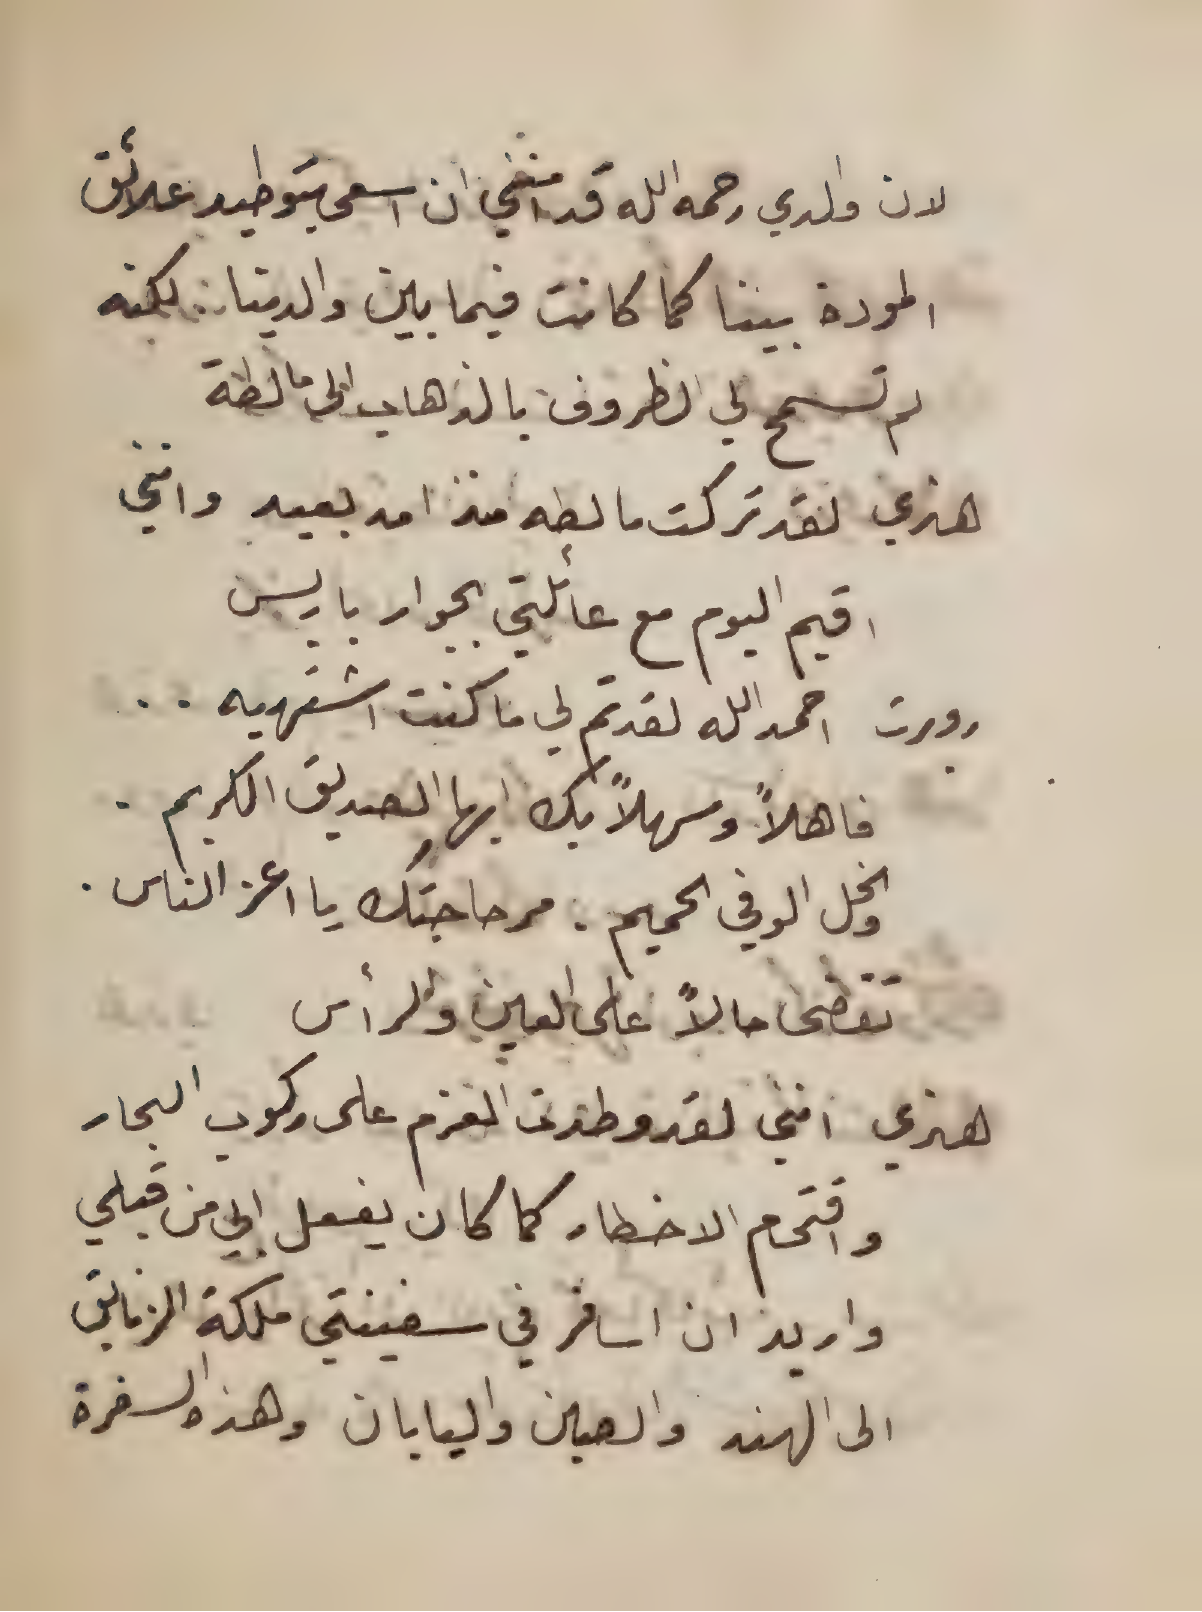 لان والدي رحمه الله قد ان اسعى بتوطيد علائق
المودة بيننا كما كانت فيما بين والدينا. لكنه
لم تسمح لي الظروف بالذهاب الى مالطة
هنري لقد تركت مالطه منذ امد بعيد وانني
اقيم اليوم مع عائلتي بجوار باريس
روبرت احمد الله لقد تم لي ما كنت اشتهيه ..
فاهلاً وسهلاً بك ايها الصديق الكريم.
والخل الوفي الحميم. مر حاجتك يا اعز الناس.
تقضى حالاً على العين والرأس
هنري انني لقد وطدت العزم على ركوب البحار
واقتحام الاخطار كما كان يفعل ابي من قبلي
واريد ان اسافر في سفينتي ملكة الزنابق
الى الهند والصين واليابان وهذه السفرة